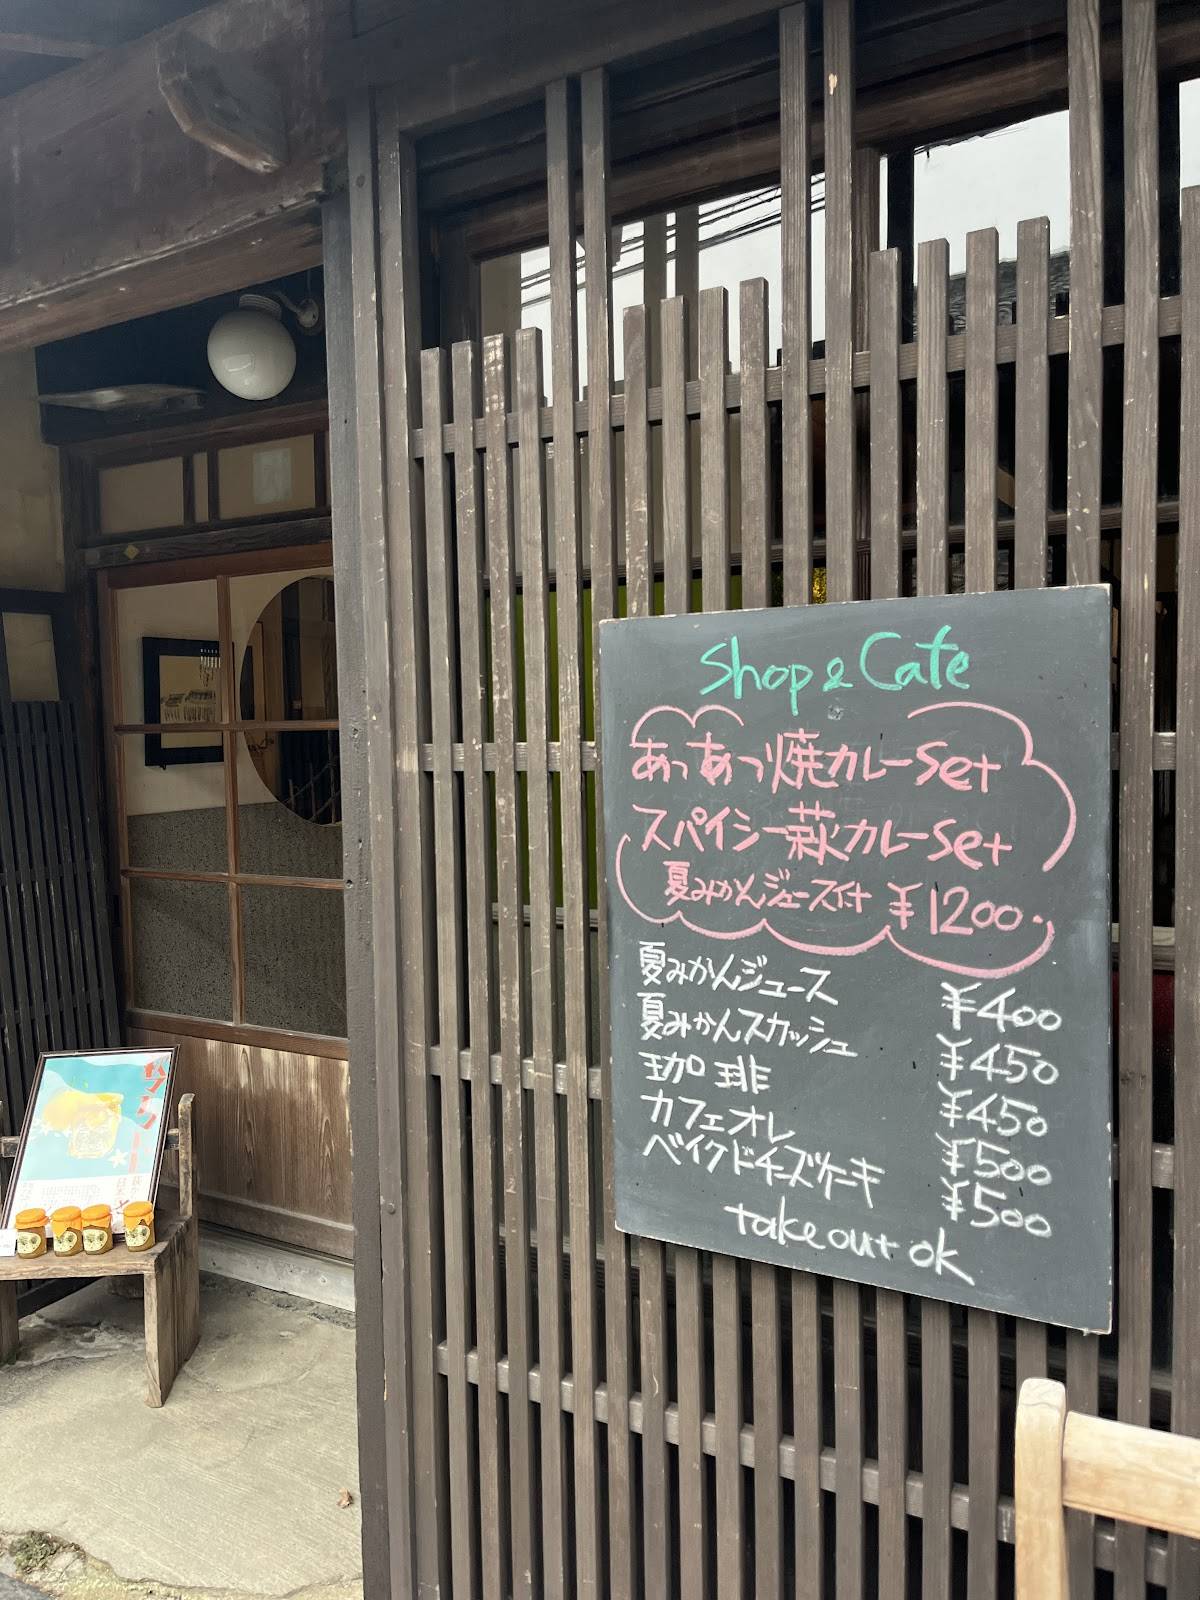 Shop & Cafe
あつあつ焼カレーset
スパイシー萩カレーset
夏みかんジュース付 ¥1200.
夏みかんジュース ¥400
夏みかんスカッシュ ¥450
珈琲 ¥450
カフェオレ ¥500
ベイクドチーズケーキ ¥500
take out ok